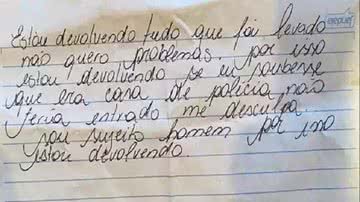 Estou devolvendo tudo que foi levado
não quero problemas. por isso
estou devolvendo se eu soubesse
que era casa de polícia não
teria entrado me desculpa
sou sujeito homem por isso
estou devolvendo.